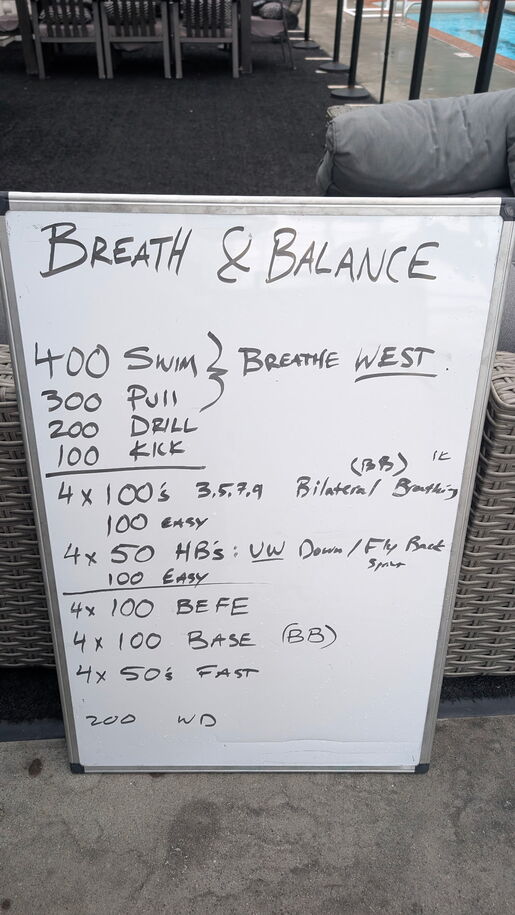 BREATH & BALANCE
400 SWIM } BREATHE WEST.
300 PULL
200 DRILL
100 KICK
(BB) 1K
4 x 100's 3.5.7.9 Bilateral Breathing
100 EASY
4 x 50 HB's: UW Down / Fly Back
100 EASY
4 x 100 BEFE
4 x 100 BASE (BB)
4 x 50's FAST
200 WD